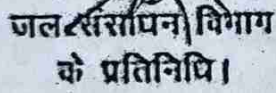 जल संसाधन विभाग
के प्रतिनिधि।